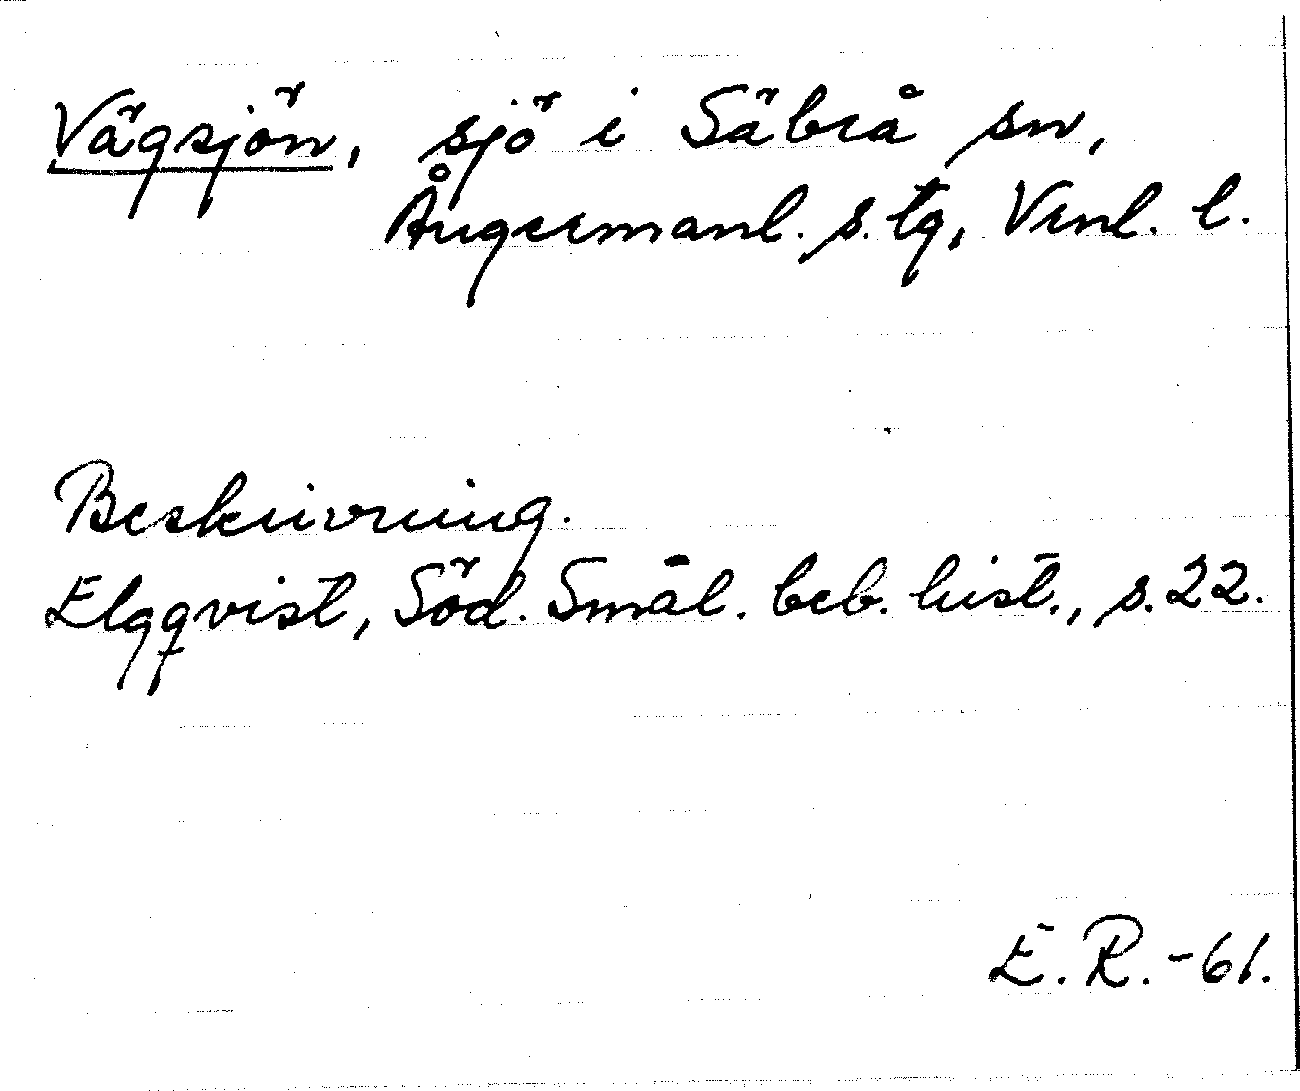 Vägsjön, sjö i Säbrå sn,
Ångermanl. s. tg, Vrnl. l.
Beskrivning.
Elgqvist, Söd. Smål. beb. hist., s. 22.
E. R. -61.